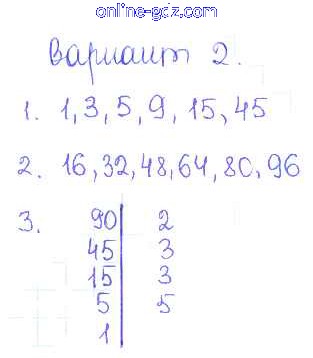 online-gdz.com
Вариант 2.
1. 1, 3, 5, 9, 15, 45
2. 16, 32, 48, 64, 80, 96
3. 90 | 2
45 | 3
15 | 3
5 | 5
1 |